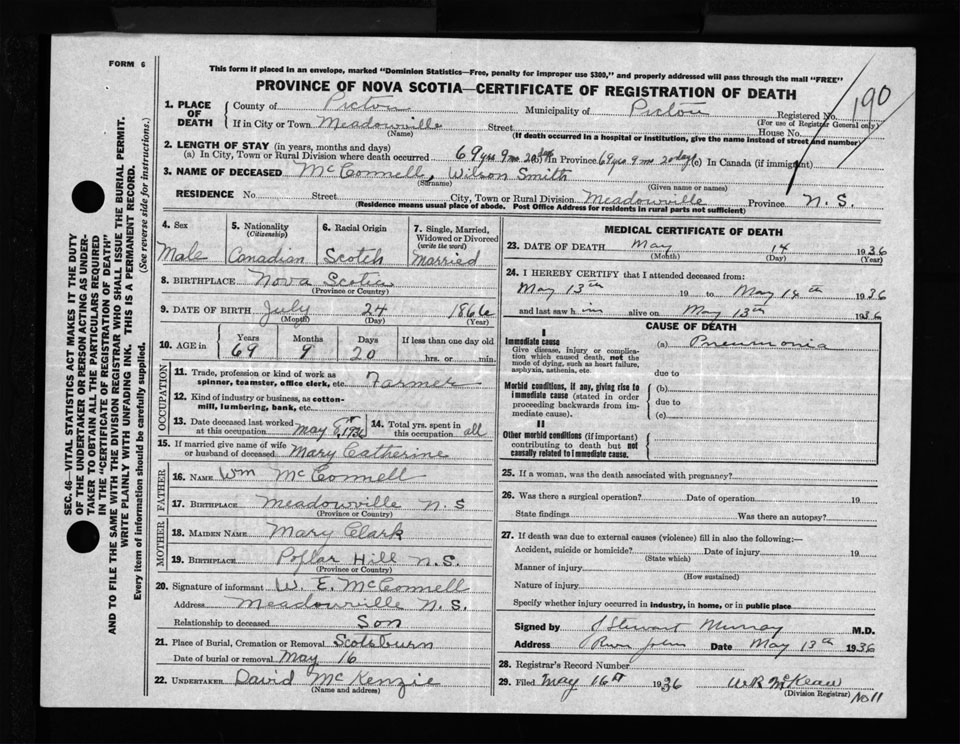 FORM 6
This form if placed in an envelope, marked "Dominion Statistics—Free, penalty for improper use $300," and properly addressed will pass through the mail "FREE"
PROVINCE OF NOVA SCOTIA—CERTIFICATE OF REGISTRATION OF DEATH
190
1. PLACE OF DEATH
County of Pictou Municipality of Pictou Registered No.
(For use of Registrar General only)
If in City or Town Meadowville Street House No.
(Name) (If death occurred in a hospital or institution, give the name instead of street and number)
2. LENGTH OF STAY (in years, months and days)
(a) In City, Town or Rural Division where death occurred 69 yrs 9 mo 20 days (b) In Province 69 yrs 9 mo 20 days (c) In Canada (if immigrant)
3. NAME OF DECEASED McConnell, Wilson Smith
(Surname) (Given name or names)
RESIDENCE No. Street City, Town or Rural Division Meadowville Province N. S.
(Residence means usual place of abode. Post Office Address for residents in rural parts not sufficient)
4. Sex Male
5. Nationality (Citizenship) Canadian
6. Racial Origin Scotch
7. Single, Married, Widowed or Divorced (write the word) Married
8. BIRTHPLACE Nova Scotia
(Province or Country)
9. DATE OF BIRTH July 24 1866
(Month) (Day) (Year)
10. AGE in Years 69 Months 9 Days 20 If less than one day old hrs. or min.
OCCUPATION
11. Trade, profession or kind of work as spinner, teamster, office clerk, etc. Farmer
12. Kind of industry or business, as cotton-mill, lumbering, bank, etc.
13. Date deceased last worked at this occupation May 1936
14. Total yrs. spent in this occupation all
15. If married give name of wife or husband of deceased Mary Catherine
FATHER
16. NAME Wm McConnell
17. BIRTHPLACE Meadowville N. S
(Province or Country)
MOTHER
18. MAIDEN NAME Mary Clark
19. BIRTHPLACE Poplar Hill N. S.
(Province or Country)
20. Signature of informant W. E. McConnell
Address Meadowville N. S.
Relationship to deceased Son
21. Place of Burial, Cremation or Removal Scotsburn
Date of burial or removal May 16
22. UNDERTAKER David McKenzie
(Name and address)
MEDICAL CERTIFICATE OF DEATH
23. DATE OF DEATH May 14 1936
(Month) (Day) (Year)
24. I HEREBY CERTIFY that I attended deceased from:
May 13th 19 to May 14th 1936
and last saw him alive on May 13th 1936
CAUSE OF DEATH
I
Immediate cause
Give disease, injury or complication which caused death, not the mode of dying, such as heart failure, asphyxia, asthenia, etc.
(a) Pneumonia
due to
Morbid conditions, if any, giving rise to immediate cause (stated in order proceeding backwards from immediate cause).
(b)
due to
(c)
II
Other morbid conditions (if important) contributing to death but not causally related to immediate cause.
25. If a woman, was the death associated with pregnancy?
26. Was there a surgical operation? Date of operation 19
State findings Was there an autopsy?
27. If death was due to external causes (violence) fill in also the following:—
Accident, suicide or homicide? Date of injury 19
(State which)
Manner of injury
(How sustained)
Nature of injury
Specify whether injury occurred in industry, in home, or in public place
Signed by J Stewart Murray M.D.
Address River John Date May 13th 1936
28. Registrar's Record Number
29. Filed May 16th 1936 W R McKeaw
(Division Registrar)
No 11
SEC. 46—VITAL STATISTICS ACT MAKES IT THE DUTY
OF THE UNDERTAKER OR PERSON ACTING AS UNDER-
TAKER TO OBTAIN ALL THE PARTICULARS REQUIRED
IN THE "CERTIFICATE OF REGISTRATION OF DEATH"
AND TO FILE THE SAME WITH THE DIVISION REGISTRAR WHO SHALL ISSUE THE BURIAL PERMIT.
WRITE PLAINLY WITH UNFADING INK. THIS IS A PERMANENT RECORD.
Every item of information should be carefully supplied. (See reverse side for instructions.)